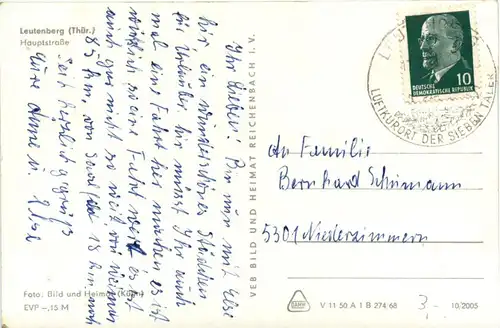 Leutenberg (Thür.)
Hauptstraße
Ihr Lieben! Bin nun mit Else
hier ein wunderschönes Städtchen
für Urlauber. Ihr müsst Ihr auch
mal eine Fahrt her machen es ist
wirklich so eine Fahrt wert es ist
auch gar nicht so weit, von Weimar
85 km, von Saalfeld 18 km
Seid herzlich gegrüßt
Eure Anne u. Else
Foto: Bild und Heimat (Kühn)
EVP –,15 M
VEB BILD UND HEIMAT REICHENBACH I. V.
10
DEUTSCHE
DEMOKRATISCHE REPUBLIK
LUFTKURORT DER SIEBEN TÄLER
An Familie
Bernhard Schümann
5301 Niederzimmern
V 11 50 A 1 B 274/68
3,-
10/2005